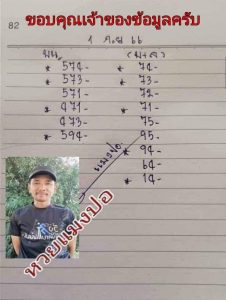 82
ขอบคุณเจ้าของข้อมูลครับ
1 ก.ย 66
บน
* 574-
* 573-
571-
* 471-
473-
* 594-
(บ+ล)
* 74-
* 73-
72-
* 71-
75-
95-
* 94-
64-
* 14-
แมงปอ
หวยแมงปอ